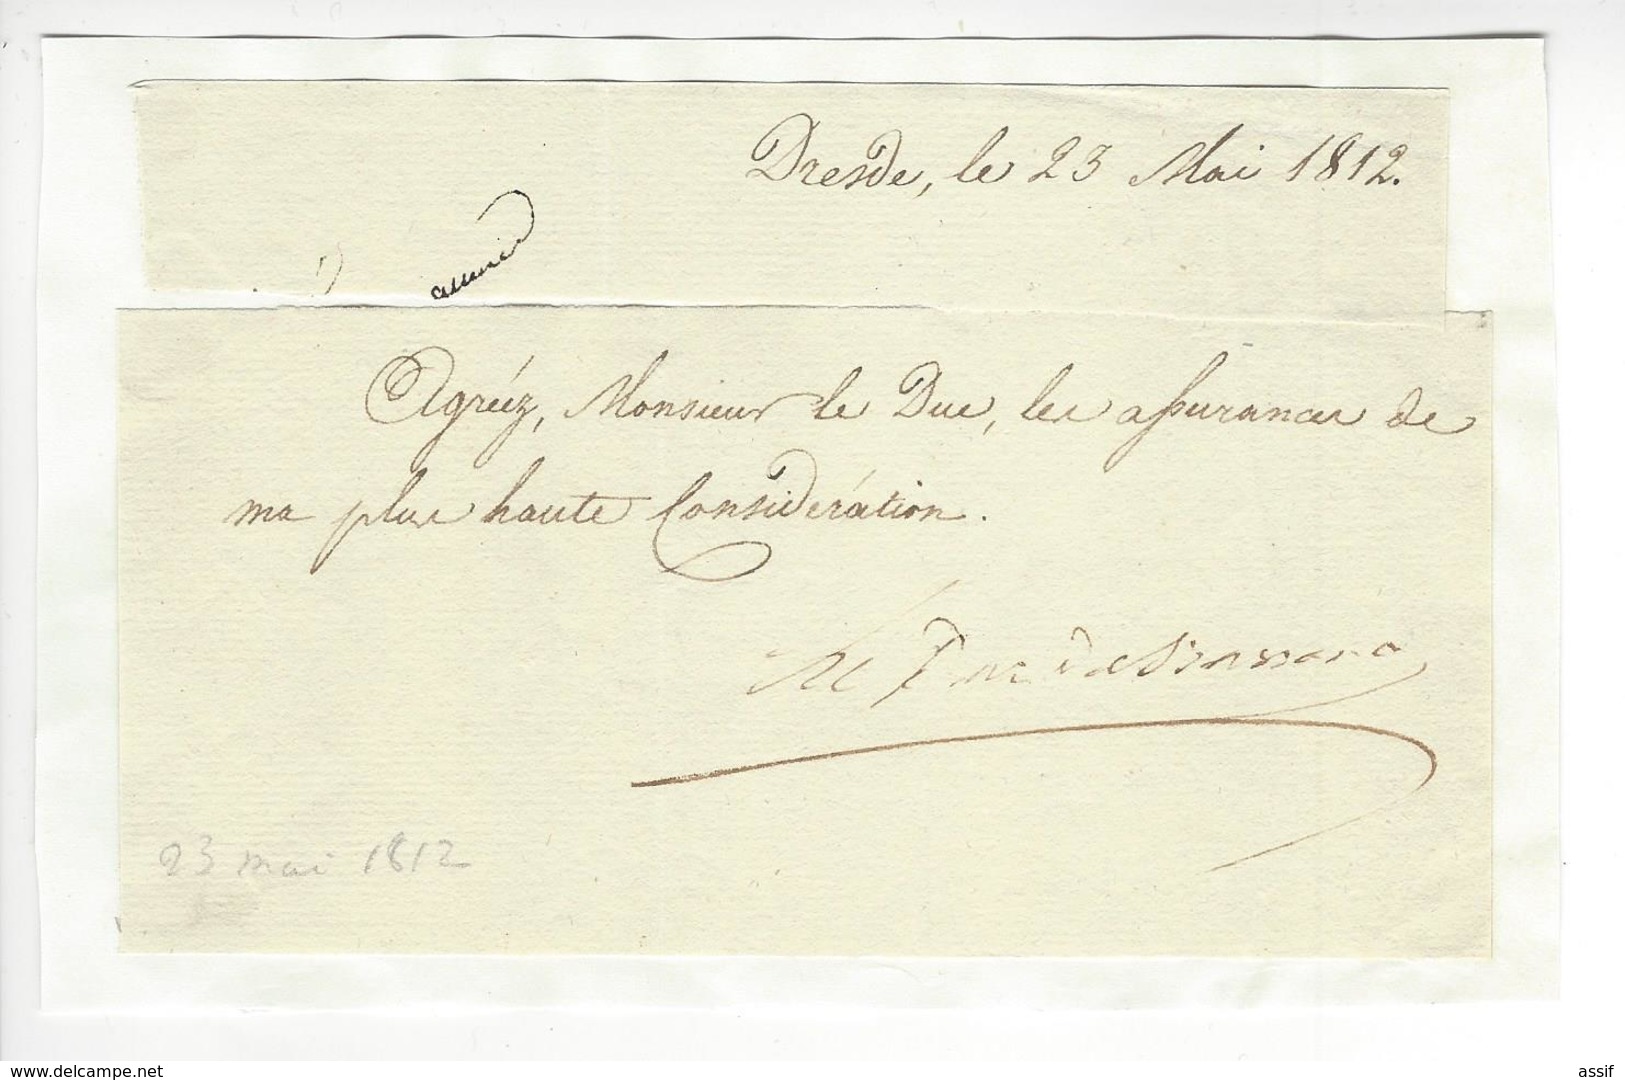 Dresde, le 23 Mai 1812.
Agréez, Monsieur le Duc, les assurances de
ma plus haute Considération.
Le Duc de Bassano
23 mai 1812
www.delcampe.net
assif